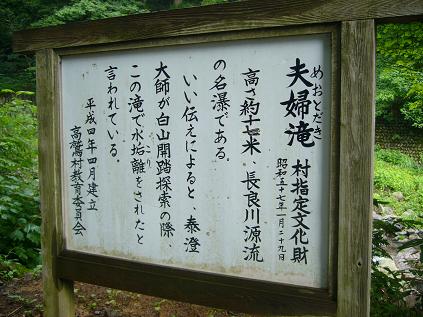 めおとだき
夫婦滝
村指定文化財
昭和五十七年一月二十九日
高さ約十七米、長良川源流
の名瀑である。
いい伝えによると、泰澄
大師が白山開踏探索の際、
この滝で水垢離をされたと
こり
言われている。
平成四年四月建立
高鷲村教育委員会